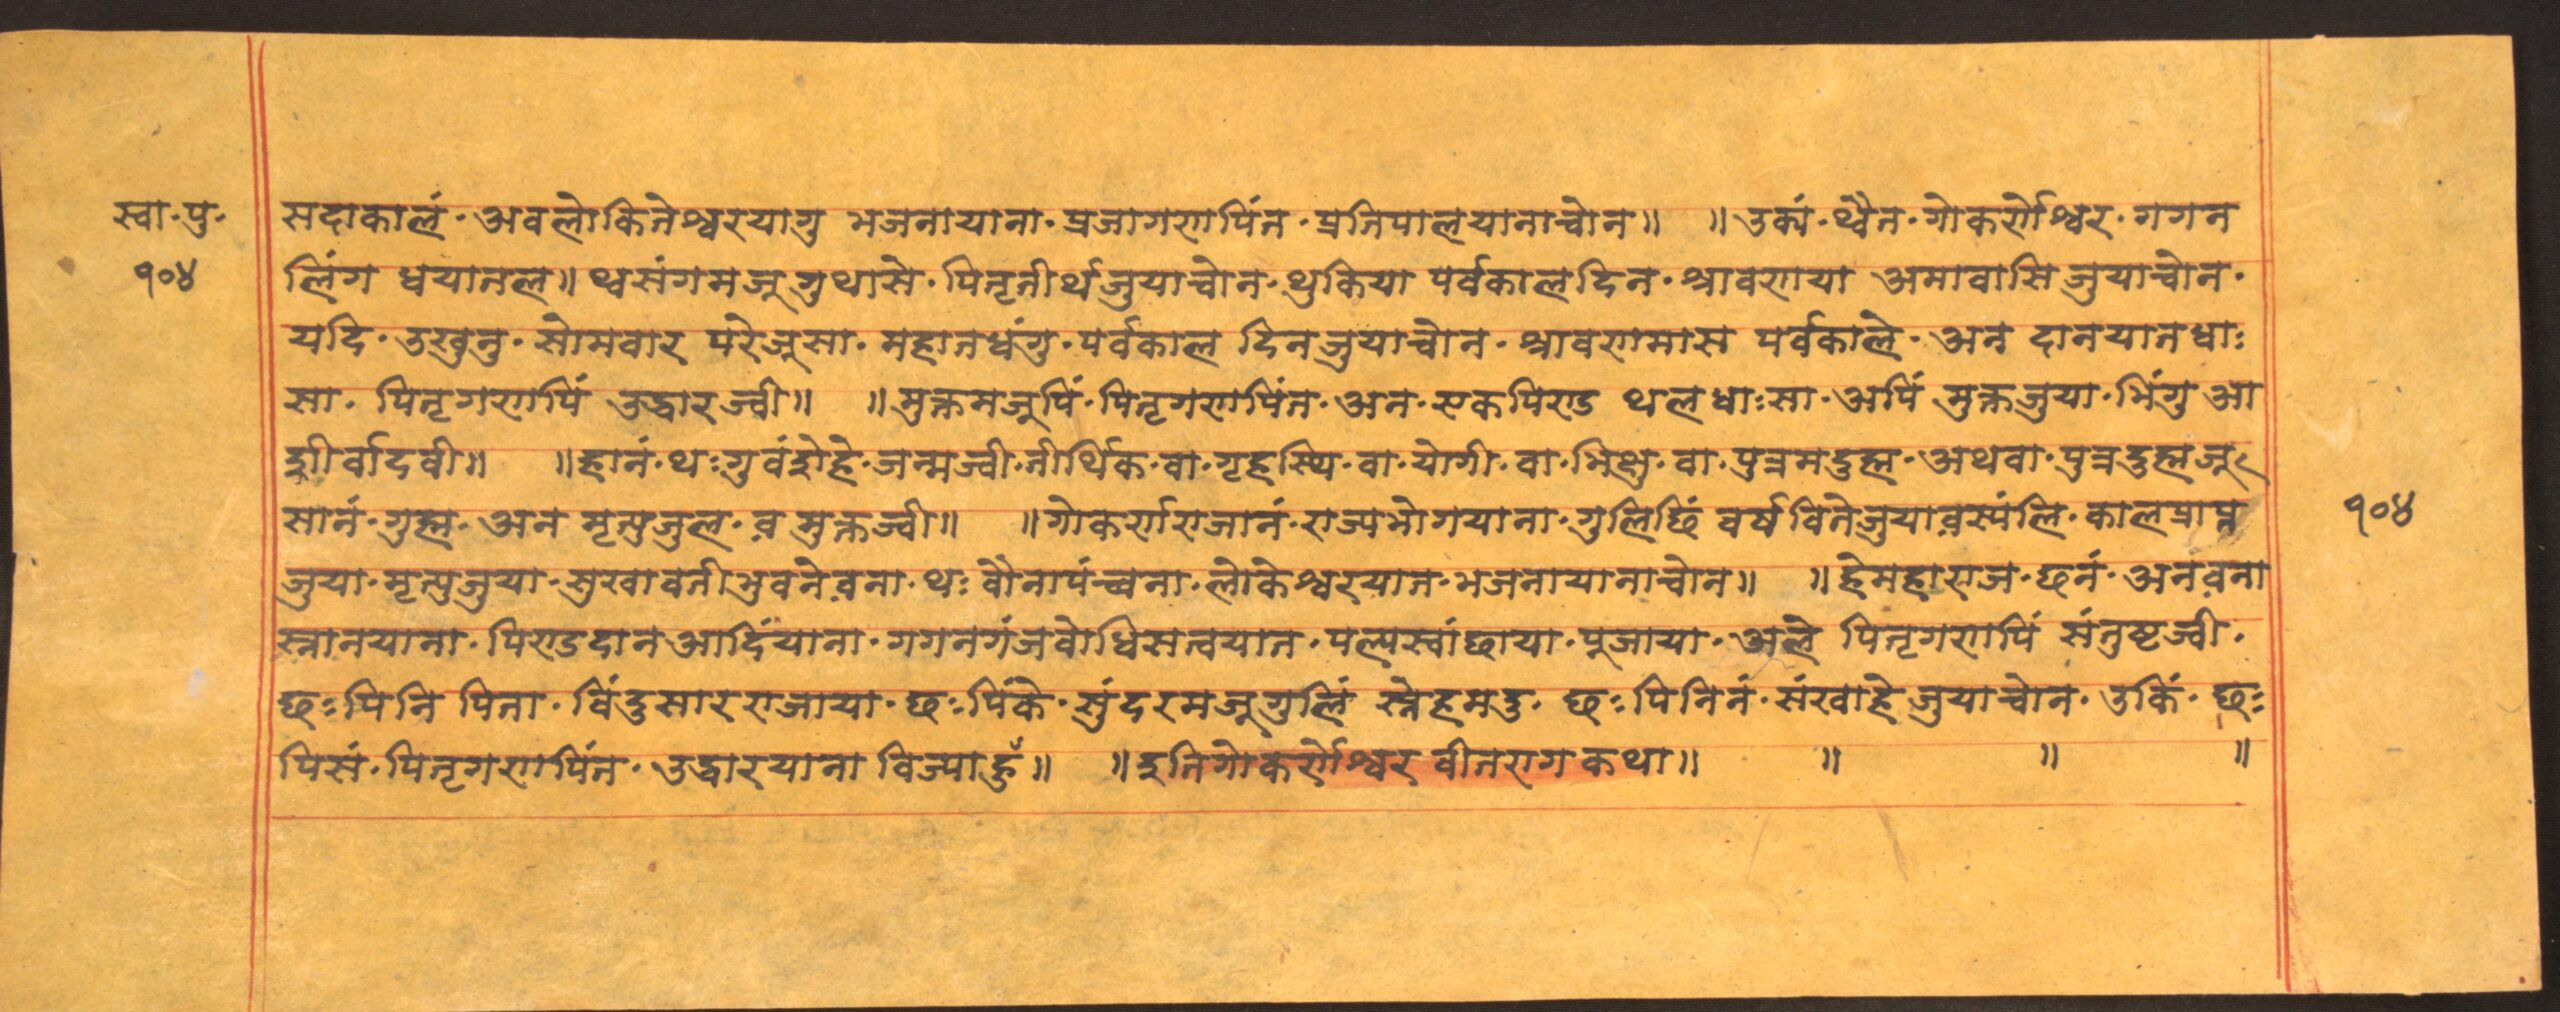 स्वा·पु·
१०४
सदाकालं·अवलोकितेश्वरयागु भजनायाना·प्रजागणपिंत·प्रतिपालयानाच्वोन॥ ॥उक्यं·थ्वैत·गोकर्णेश्वर·गगन
लिंग धयातल॥ थ्वसंगमजूगुथासे·पितृतीर्थजुयाच्वोन·थुकिया पर्वकालदिन·श्रावणया अमावासि जुयाच्वोन·
यदि·उखुनु·सोमवार परेजूसा·महातधंगु·पर्वकाल दिनजुयाच्वोन·श्रावणमास पर्वकाले·अन दानयातधाः
सा·पितृगणपिं उद्धारज्वी॥ ॥मुक्तमजूपिं·पितृगणपिंत·अन·एकपिण्ड थलधाःसा·अपिं मुक्तजुया·भिंगु आ
शीर्वादवी॥ ॥ह्वानं·थःगुवंशेहे·जन्मज्वी·तीर्थिक·वा·गृहस्थि·वा·योगी·वा·भिक्षु·वा·पुत्रमदुह्म·अथवा·पुत्रदुह्मजू
सानं·गुह्म·अन मृत्युजुल·व मुक्तज्वी॥ ॥गोकर्णराजानं·राज्यभोगयाना·गुलिछिं वर्ष वितेजुयावस्यंलि·कालप्राप्त
जुया·मृत्युजुया·सुखावतीभुवने वना·थः वौनापंच्वना·लोकेश्वरयात·भजनायानाच्वोन॥ ॥हेमहाराज·छनं·अनवना
स्नानयाना·पिण्डदानआदियाना·गगनगंजवोधिसत्वयात·पल्यस्वांछाया·पूजाया·अले पितृगणपिं संतुष्टज्वी·
छःपिनि पिता·विंदुसारराजाया·छःपिंके·सुंदरमजूगुलिं स्नेहमदु·छःपिनिनं·संखाहे जुयाच्वोन·उकिं·छः
पिसं·पितृगणपिंत·उद्धारयाना विज्याहुँ॥ ॥इतिगोकर्णेश्वर वीतरागकथा॥ ॥ ॥ ॥
१०४